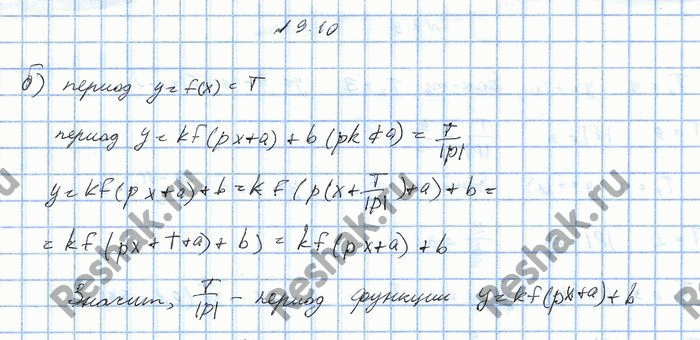 19.10
б) период y = f(x) = T
период y = kf(px+a) + b (pk≠a) = T/|p|
y = kf(px+a)+b = kf(p(x+T/|p|)+a)+b =
= kf(px+T+a)+b) = kf(px+a)+b
Значит, T/|p| - период функции y = kf(px+a)+b
Reshak.ru
Reshak.ru
Reshak.ru